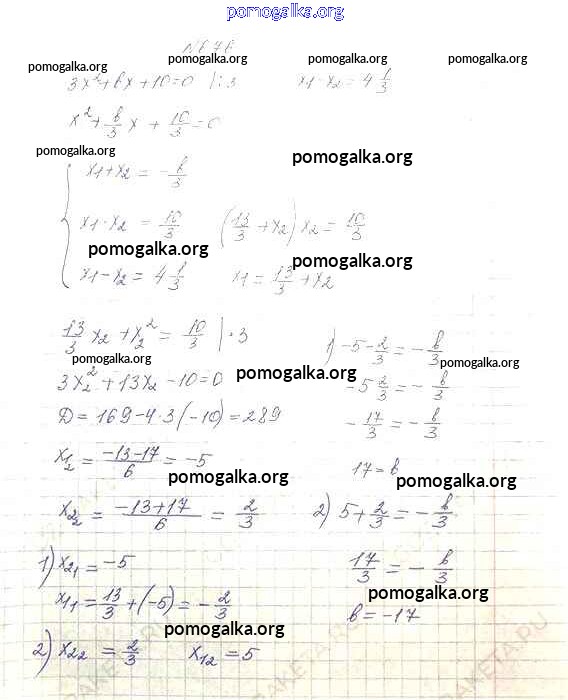 pomogalka.org
N676
pomogalka.org pomogalka.org pomogalka.org pomogalka.org
3x²+bx+10=0 |:3 x1-x2=4 1/3
x²+b/3 x+10/3=0
pomogalka.org pomogalka.org
x1+x2=-b/3
x1·x2=10/3 (13/3+x2)x2=10/3
pomogalka.org pomogalka.org
x1-x2=4 1/3 x1=13/3+x2
13/3 x2+x2²=10/3 |·3 1) -5-2/3=-b/3
pomogalka.org pomogalka.org pomogalka.org
3x2²+13x2-10=0 -5 2/3=-b/3
D=169-4·3(-10)=289 -17/3=-b/3
x12=-13-17/6=-5 17=b
pomogalka.org pomogalka.org
x22=-13+17/6=2/3 2) 5+2/3=-b/3
1) x21=-5 17/3=-b/3
x11=13/3+(-5)=-2/3 b=-17
pomogalka.org pomogalka.org
2) x22=2/3 x12=5